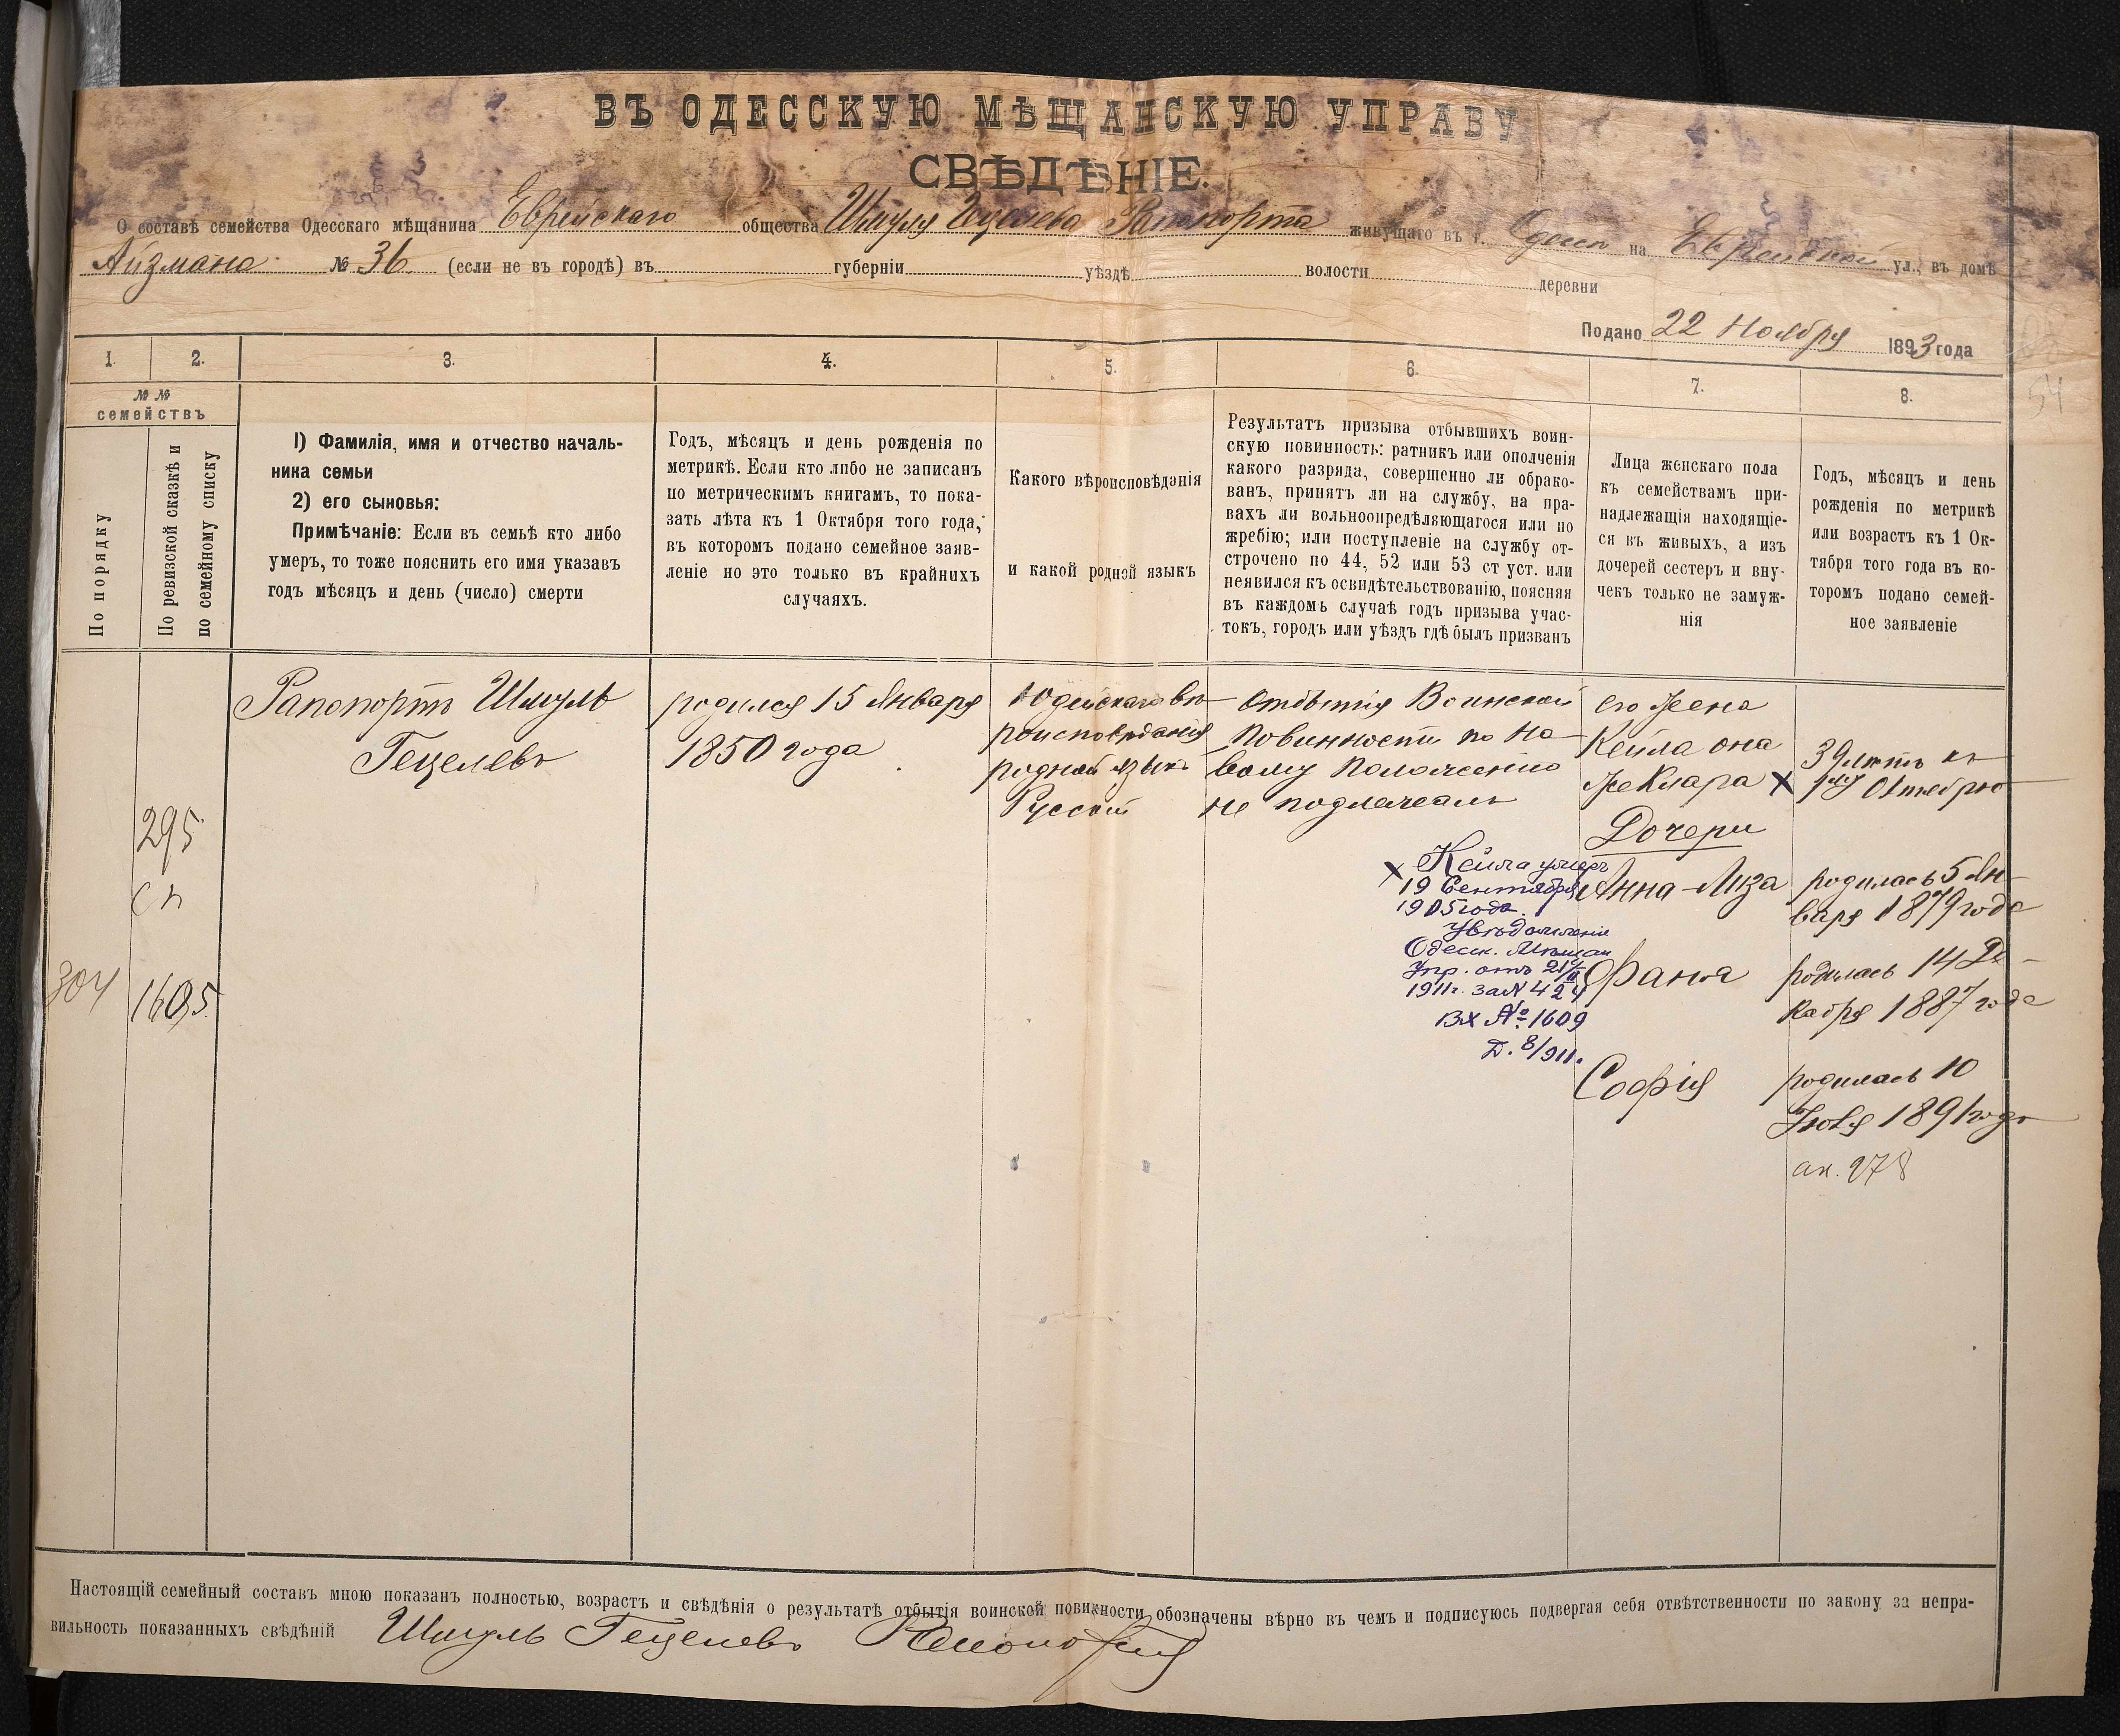 ВЪ ОДЕССКУЮ МѢЩАНСКУЮ УПРАВУ
СВѢДѢНІЕ.
О составѣ семейства Одесскаго мѣщанина Еврейскаго общества Шмуля Гецелева Рапопорта живущаго въ г. Одессѣ на Еврейской ул., въ домѣ
Айзмана № 36 (если не въ городѣ) въ губерніи уѣздѣ волости деревни
Подано 22 Ноября 1893 года
1. 2. 3. 4. 5. 6. 7. 8.
№ №
семействъ
По порядку
По ревизской сказкѣ и
по семейному списку
1) Фамилія, имя и отчество началь-
ника семьи
2) его сыновья:
Примѣчаніе: Если въ семьѣ кто либо
умеръ, то тоже пояснить его имя указавъ
годъ мѣсяцъ и день (число) смерти
Годъ, мѣсяцъ и день рожденія по
метрикѣ. Если кто либо не записанъ
по метрическимъ книгамъ, то пока-
зать лѣта къ 1 Октября того года,
въ которомъ подано семейное заяв-
леніе но это только въ крайнихъ
случаяхъ.
Какого вѣроисповѣданія
и какой родной языкъ
Результатъ призыва отбывшихъ воин-
скую повинность: ратникъ или ополченія
какого разряда, совершенно ли обрако-
ванъ, принятъ ли на службу, на пра-
вахъ ли вольноопредѣляющагося или по
жребію; или поступленіе на службу от-
строчено по 44, 52 или 53 ст уст. или
неявился къ освидѣтельствованію, поясняя
въ каждомъ случаѣ годъ призыва учас-
токъ, городъ или уѣздъ гдѣ былъ призванъ
Лица женскаго пола
къ семействамъ при-
надлежащія находящіе-
ся въ живыхъ, а изъ
дочерей сестеръ и вну-
чекъ только не замуж-
нія
Годъ, мѣсяцъ и день
рожденія по метрикѣ
или возрастъ къ 1 Ок-
тября того года въ ко-
торомъ подано семей-
ное заявленіе
54
304
295
сп
1605
Рапопортъ Шмуль
Гецелевъ
родился 15 Января
1850 года
Іудейскаго вѣ-
роисповѣданія
родной языкъ
Русскій
Отбытія Воинской
Повинности по но-
вому Положенію
не подлежалъ
его жена
Кейла она
же Клара X
39 лѣтъ къ
1му Октября
Дочери
Анна-Лиза
родилась 5 Ян-
варя 1879 года
Фаня
родилась 14 Де-
кабря 1887 года
Софія
родилась 10
Іюля 1891 года
ак. 278
X Кейла умерла
19 Сентября
1905 года.
Увѣдомленіе
Одесск. Мѣщан
Упр. отъ
1911г. за N 424
Вх №. 1609
Д. 8/911.
Настоящій семейный составъ мною показанъ полностью, возрастъ и свѣдѣнія о результатѣ отбытія воинской повинности обозначены вѣрно въ чемъ и подписуюсь подвергая себя отвѣтственности по закону за непра-
вильность показанныхъ свѣдѣній Шмуль Гецелевъ Рапопортъ